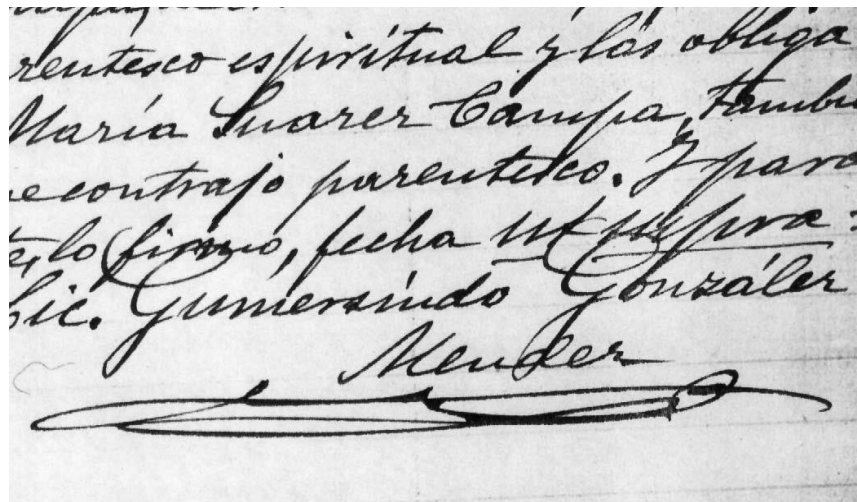 rentesco espiritual y las obliga
María Suarez Campa, tambi
e contrajo parentesco. Y para
te, lo firmo, fecha ut supra =
Lic. Gumersindo González
Mendez